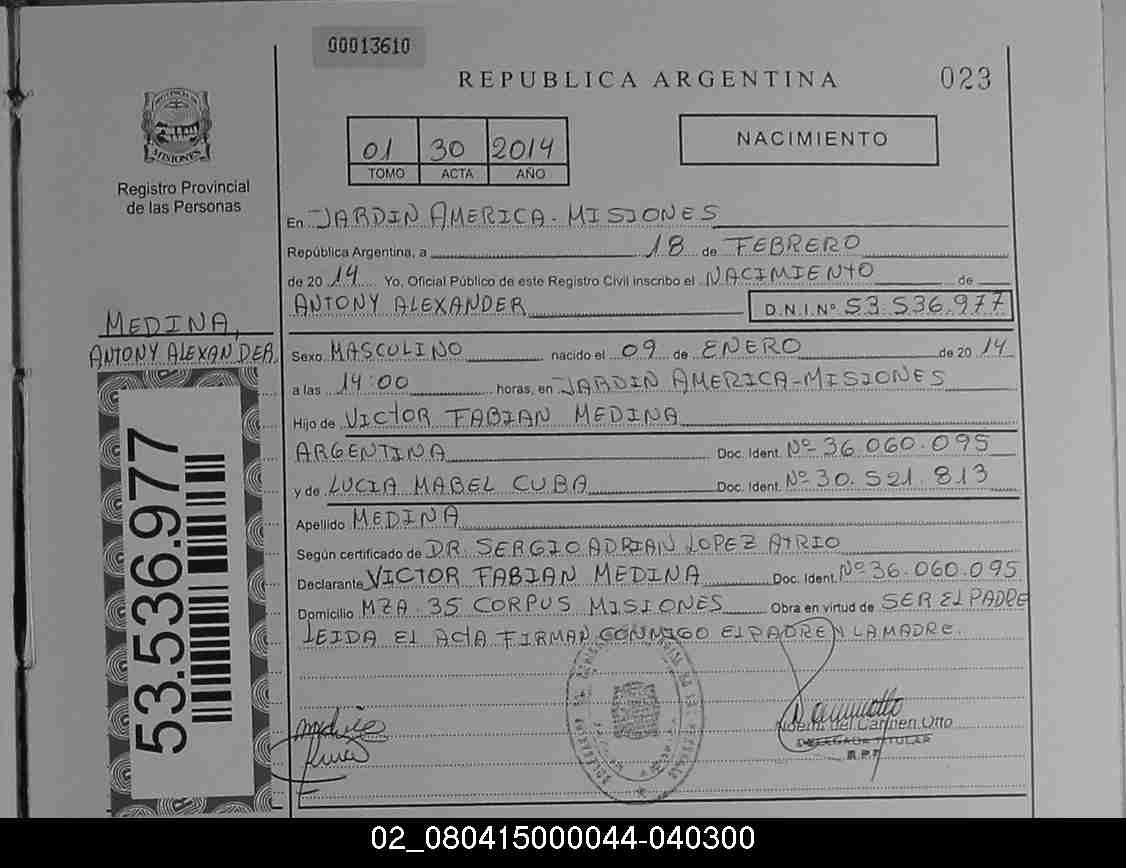 00013610
REPUBLICA ARGENTINA
023
PROVINCIA DE
MISIONES
Registro Provincial
de las Personas
01 30 2014
TOMO ACTA AÑO
NACIMIENTO
En JARDIN AMERICA - MISIONES
República Argentina, a 18 de FEBRERO
de 2014 Yo, Oficial Público de este Registro Civil inscribo el NACIMIENTO de
ANTONY ALEXANDER D.N.I.Nº 53.536.977
MEDINA,
ANTONY ALEXANDER.
Sexo MASCULINO nacido el 09 de ENERO de 2014
a las 14:00 horas, en JARDIN AMERICA-MISIONES
Hijo de VICTOR FABIAN MEDINA
ARGENTINA Doc. Ident. Nº 36.060.095
y de LUCIA MABEL CUBA Doc. Ident. Nº 30.521.813
Apellido MEDINA
Según certificado de DR. SERGIO ADRIAN LOPEZ ATRIO
Declarante VICTOR FABIAN MEDINA Doc. Ident. Nº 36.060.095
Domicilio MZA 35 CORPUS MISIONES Obra en virtud de SER EL PADRE
LEIDA EL ACTA FIRMAN CONMIGO EL PADRE Y LA MADRE.
53.536.977
del Carmen Otto
DELEGADA TITULAR
R.P.P
02_080415000044-040300